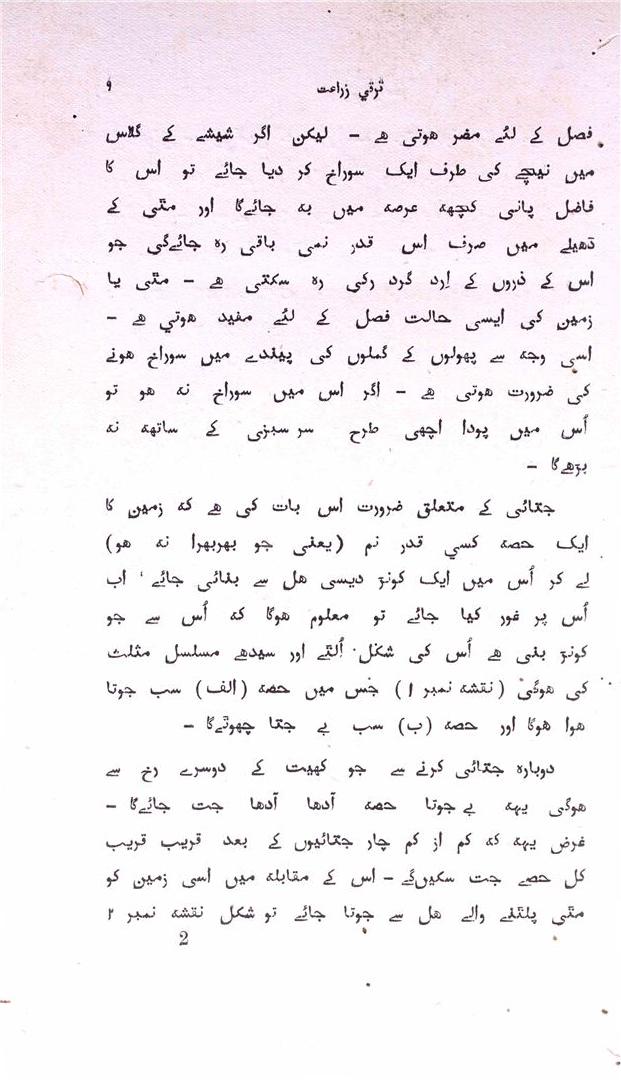 ترقي زراعت ۹
فصل کے لئے مضر ہوتی ہے - لیکن اگر شیشے کے گلاس
میں نیچے کی طرف ایک سوراخ کر دیا جائے تو اس کا
فاضل پانی کچھہ عرصہ میں بہ جائےگا اور مٹی کے
ڈھیلے میں صرف اس قدر نمی باقی رہ جائےگی جو
اس کے ذروں کے اِرد گرد رکی رہ سکتی ہے - مٹی یا
زمین کی ایسی حالت فصل کے لئے مفید ہوتي ہے -
اسی وجہ سے پھولوں کے گملوں کی پیندے میں سوراخ ہونے
کی ضرورت ہوتی ہے - اگر اس میں سوراخ نہ ہو تو
اُس میں پودا اچھی طرح سر سبزی کے ساتھہ نہ
بڑھےگا -
جتائی کے متعلق ضرورت اس بات کی ہے کہ زمین کا
ایک حصہ کسي قدر نم (یعنی جو بھربھرا نہ ہو)
لے کر اُس میں ایک کونڑ دیسی ہل سے بنائی جائے ‘ اب
اُس پر غور کیا جائے تو معلوم ہوگا کہ اُس سے جو
کونڑ بنی ہے اُس کی شکل اُلٹے اور سیدھے مسلسل مثلث
کی ہوگی (نقشہ نمبر ۱) جس میں حصہ (الف) سب جوتا
ہوا ہوگا اور حصہ (ب) سب بے جتا چھوٹےگا -
دوبارہ جتائی کرنے سے جو کھیت کے دوسرے رخ سے
ہوگی یہہ بےجوتا حصہ آدھا آدھا جت جائےگا -
غرض یہہ کہ کم از کم چار جتائیوں کے بعد قریب قریب
کل حصے جت سکیں گے - اس کے مقابلہ میں اسی زمین کو
مٹی پلٹنے والے ہل سے جوتا جائے تو شکل نقشہ نمبر ۲
2